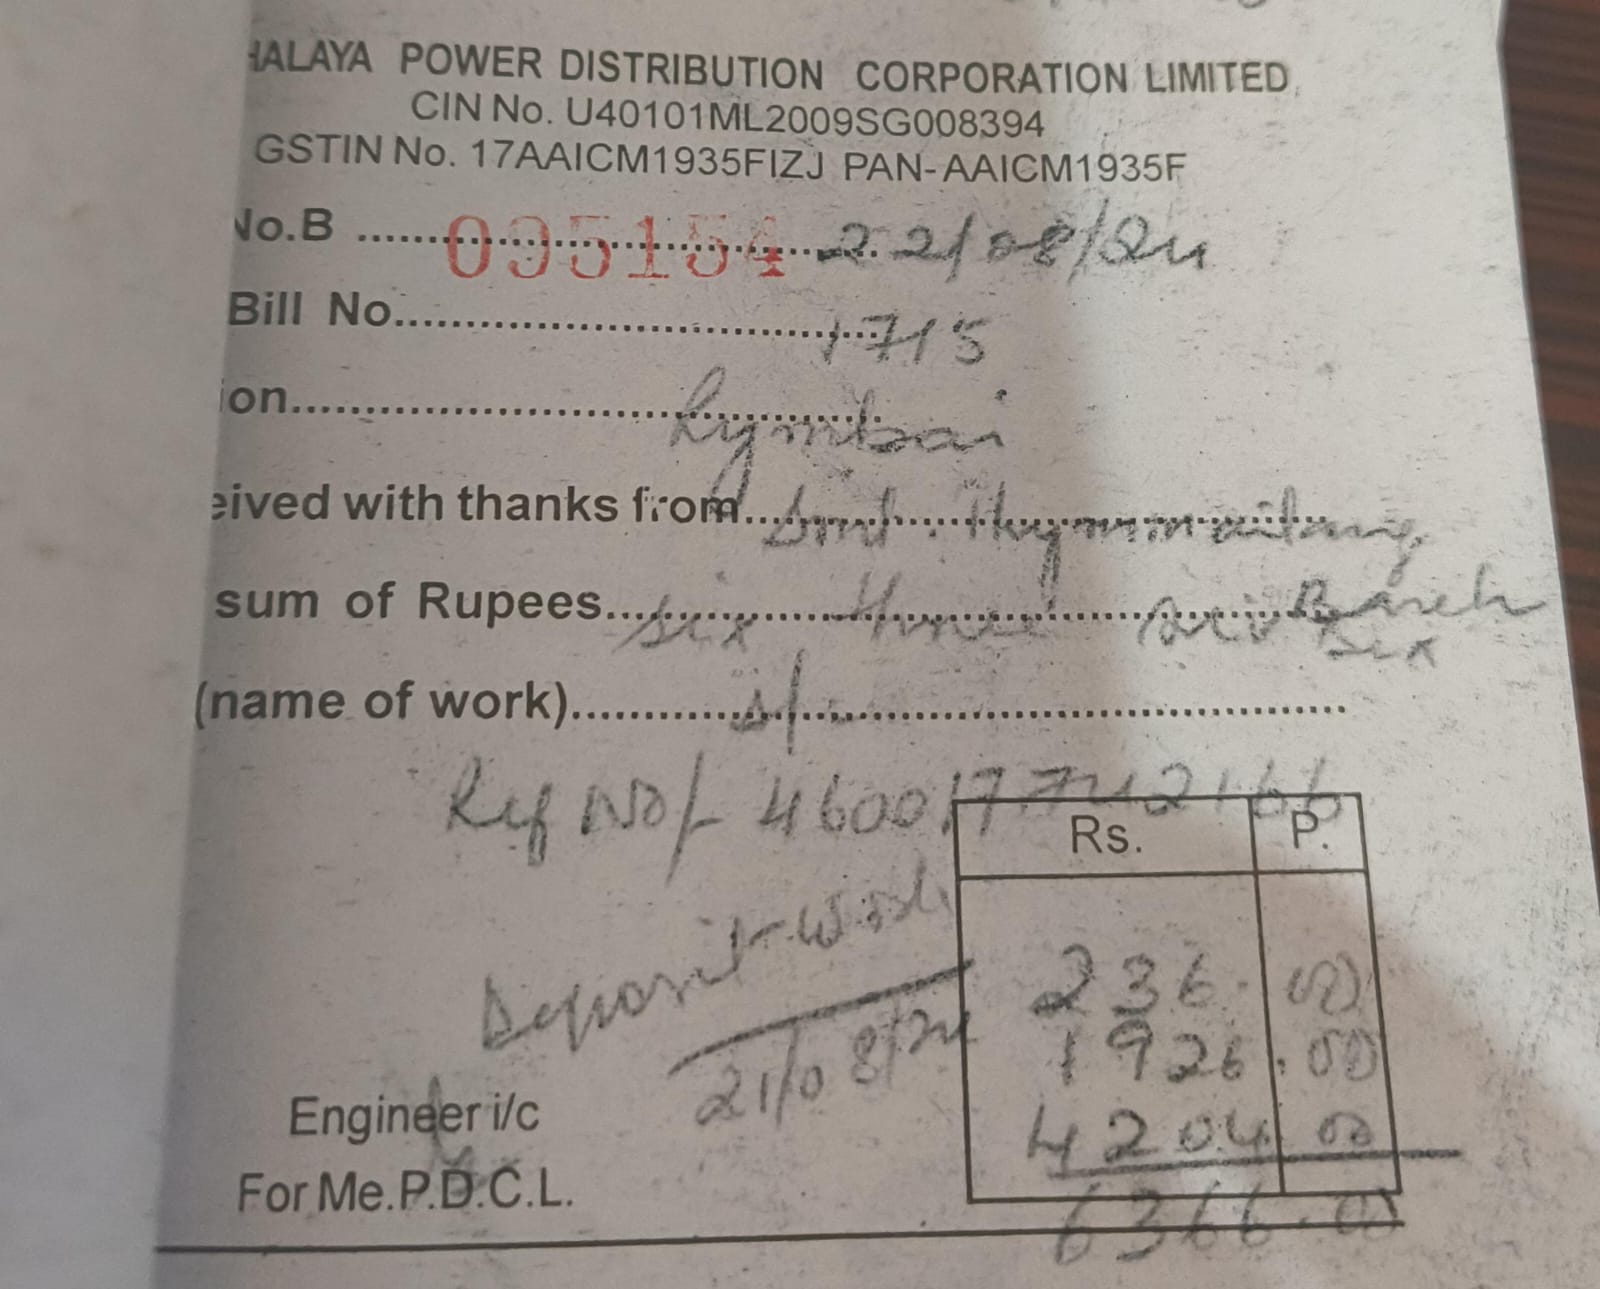 HALAYA POWER DISTRIBUTION CORPORATION LIMITED
CIN No. U40101ML2009SG008394
GSTIN No. 17AAICM1935FIZJ PAN-AAICM1935F
No.B ........ 095154 ........ 22/08/24
Bill No........ 1715
ion........ Rymbai
eived with thanks from........ Smt. Thymmaitang
Bareh
sum of Rupees........ Six three six six
(name of work)........
Ref No/- 460017742166
Rs. P.
Deposit work
21/08/24
236.00
1926.00
4204.00
6366.00
Engineer i/c
For Me.P.D.C.L.